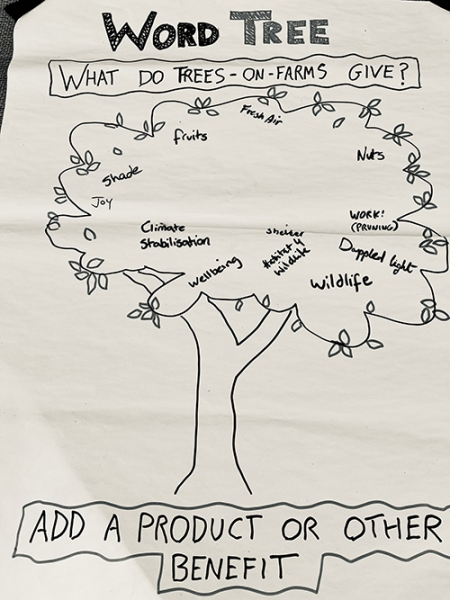 WORD TREE
WHAT DO TREES-ON-FARMS GIVE?
Fresh Air
fruits
Nuts
Shade
Joy
WORK!
(PRUNING)
Climate
Stabilisation
shelter
Habitat 4
Wildlife
Dappled light
wellbeing
Wildlife
ADD A PRODUCT OR OTHER
BENEFIT